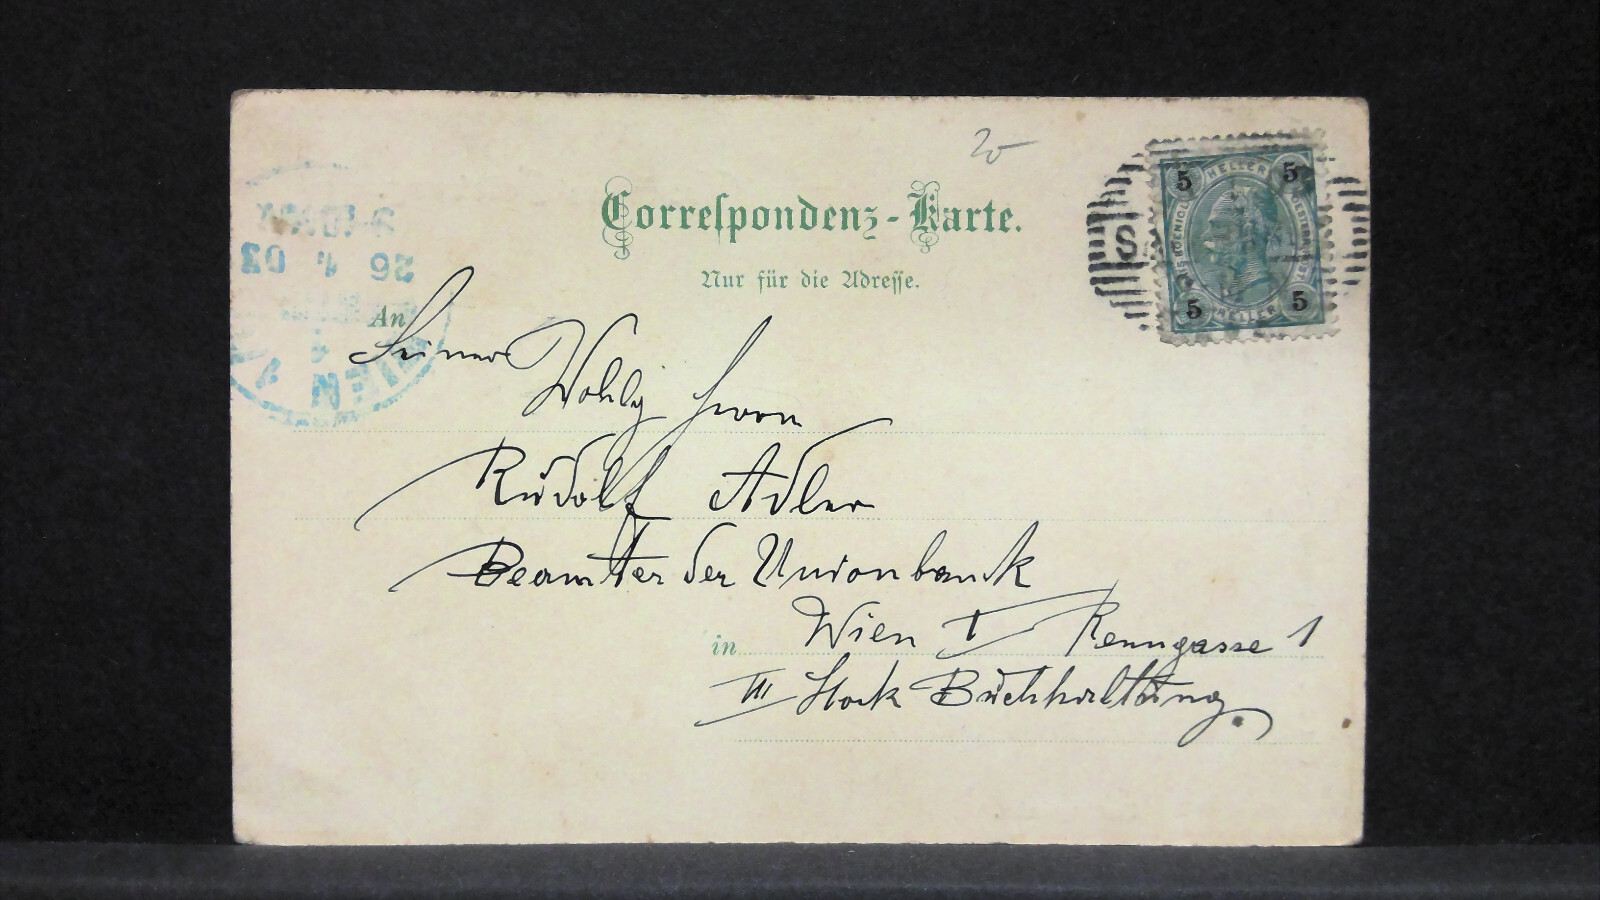 20
Correspondenz-Karte.
Nur für die Adresse.
5 HELLER 5
5 HELLER 5
S
26 1. 03
WIEN
An
Seiner
Wohlg Herrn
Rudolf Adler
Beamter der Unionbank
in Wien I Renngasse 1
III Stock Buchhaltung.